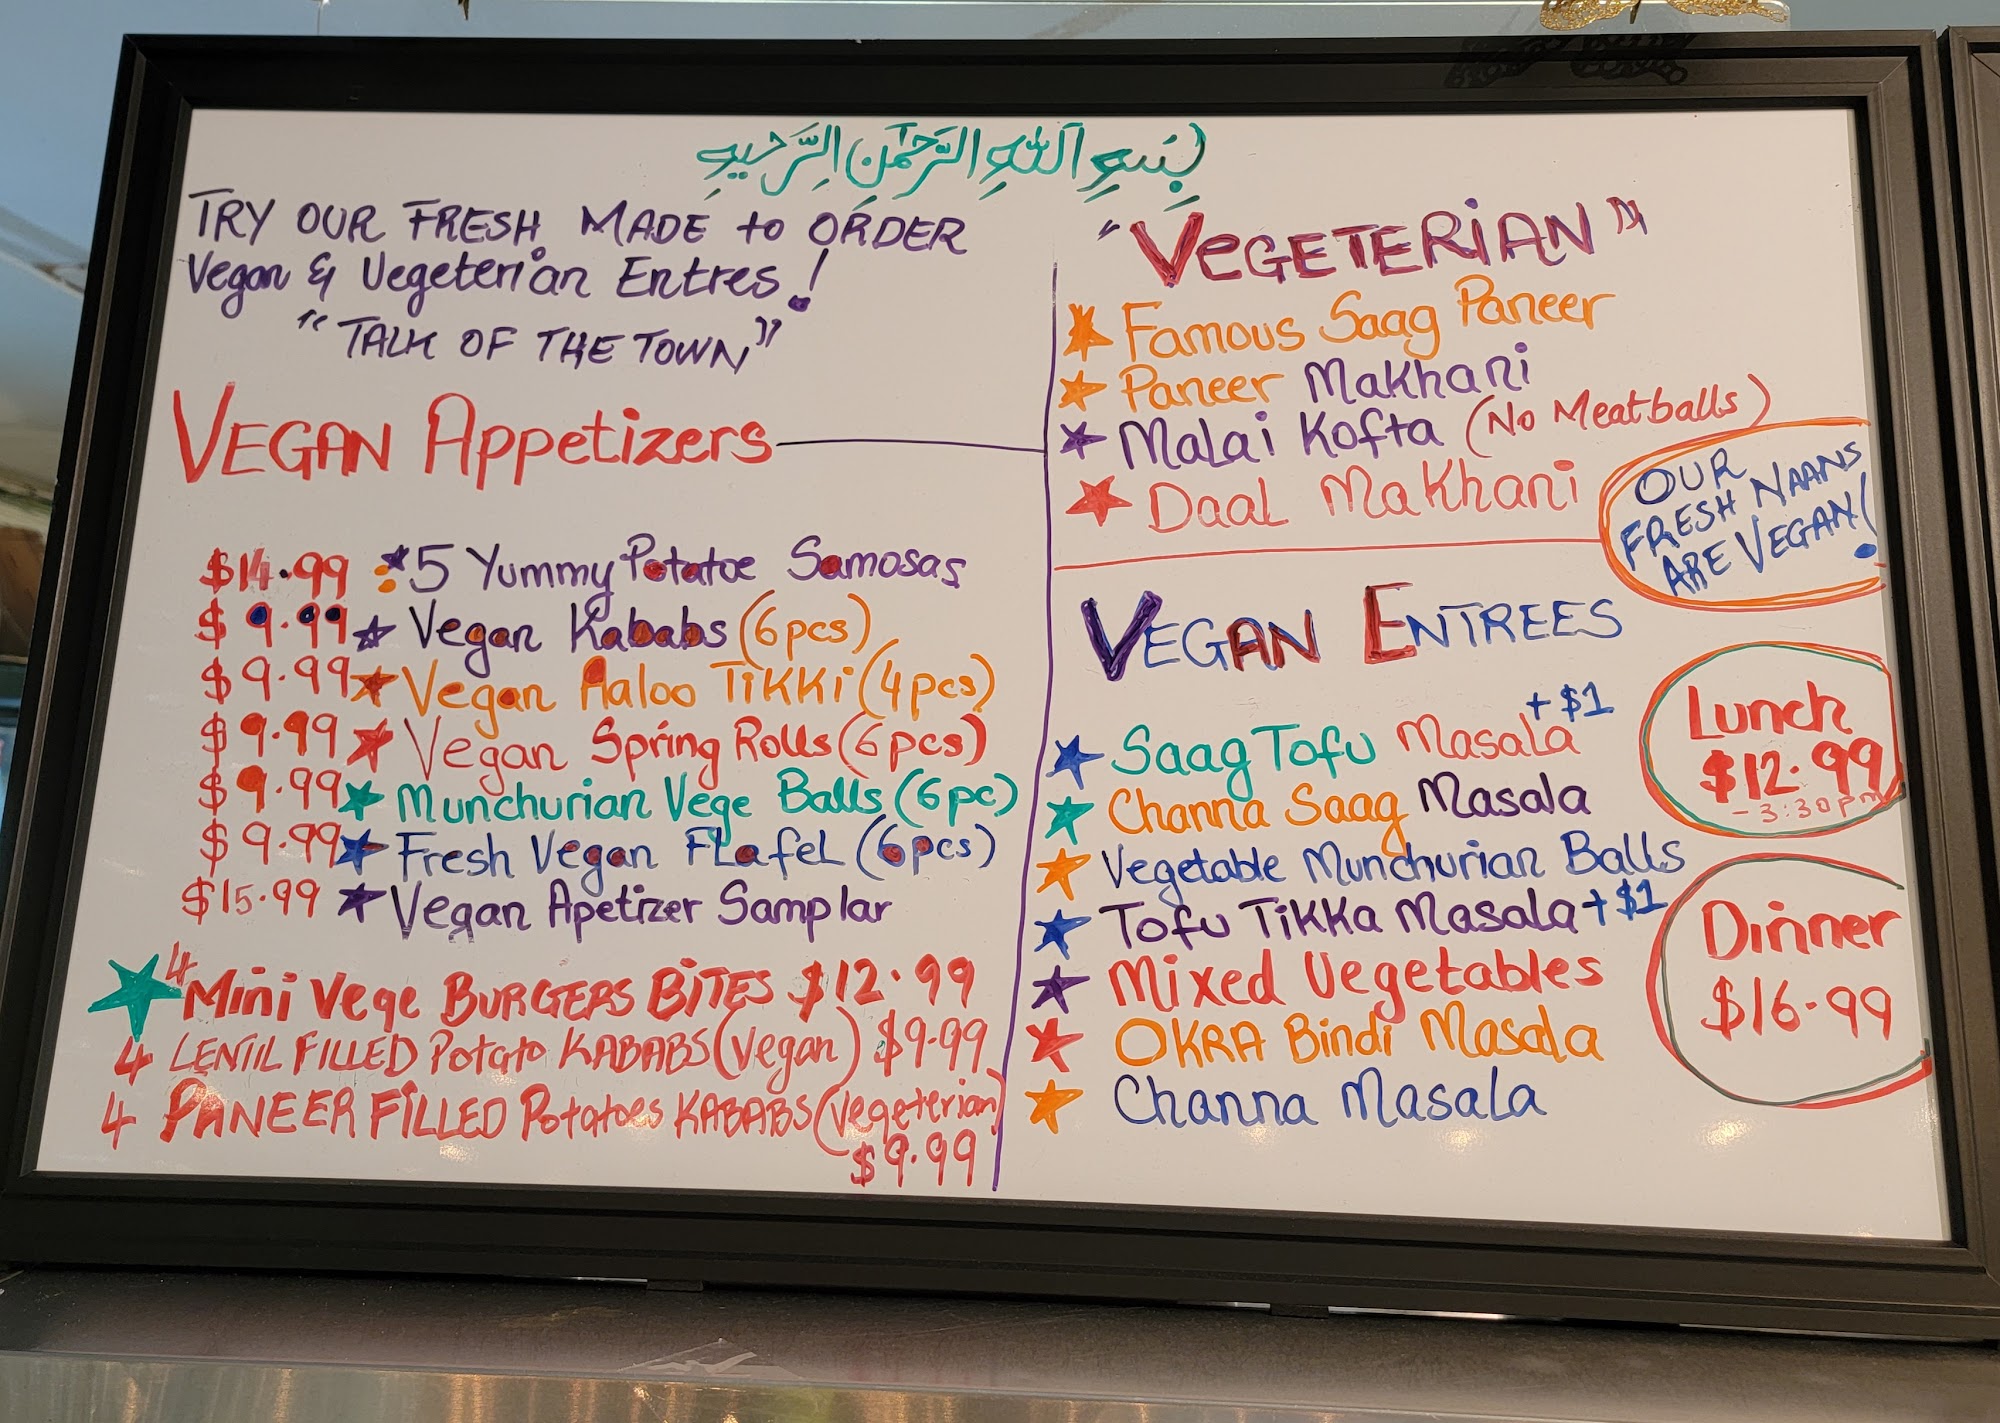 بِسْمِ اللهِ الرَّحْمٰنِ الرَّحِيمِ
TRY OUR FRESH MADE to ORDER
Vegan & Vegeterian Entres!
"TALK OF THE TOWN"
VEGAN Appetizers
$14.99 5 Yummy Potatoe Samosas
$9.99 Vegan Kababs (6pcs)
$9.99 Vegan Aaloo TiKKi (4pcs)
$9.99 Vegan Spring Rolls (6pcs)
$9.99 Munchurian Vege Balls (6pc)
$9.99 Fresh Vegan FLafeL (6pcs)
$15.99 Vegan Apetizer Samplar
4 Mini Vege BURGERS BiTES $12.99
4 LENTIL FILLED Potato KABABS (Vegan) $9.99
4 PANEER FiLLED Potatoes KABABS (Vegeterian)
$9.99
"VeGETERiAN"
Famous Saag Paneer
Paneer Makhani
Malai Kofta (No Meatballs)
Daal Makhani
OUR
FRESH NAANS
ARE VEGAN!
VEGAN ENTREES
Saag Tofu Masala +$1
Channa Saag Masala
Vegetable Munchurian Balls
Tofu TiKKa Masala +$1
Mixed Vegetables
OKRA Bindi Masala
Channa Masala
Lunch
$12.99
-3:30pm
Dinner
$16.99